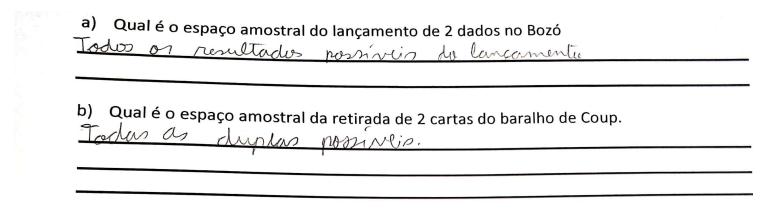 a) Qual é o espaço amostral do lançamento de 2 dados no Bozó
Todos os resultados possíveis do lançamento
b) Qual é o espaço amostral da retirada de 2 cartas do baralho de Coup.
Todas as duplas possíveis.